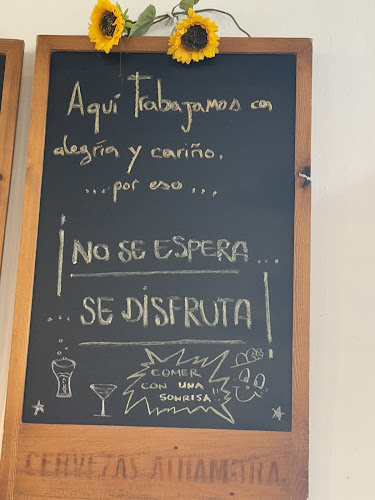 Aquí Trabajamos con
alegría y cariño.
...por eso...
¡NO SE ESPERA...
...SE DISFRUTA!
COMER
CON UNA
SONRISA!!
CERVEZAS ALHAMBRA